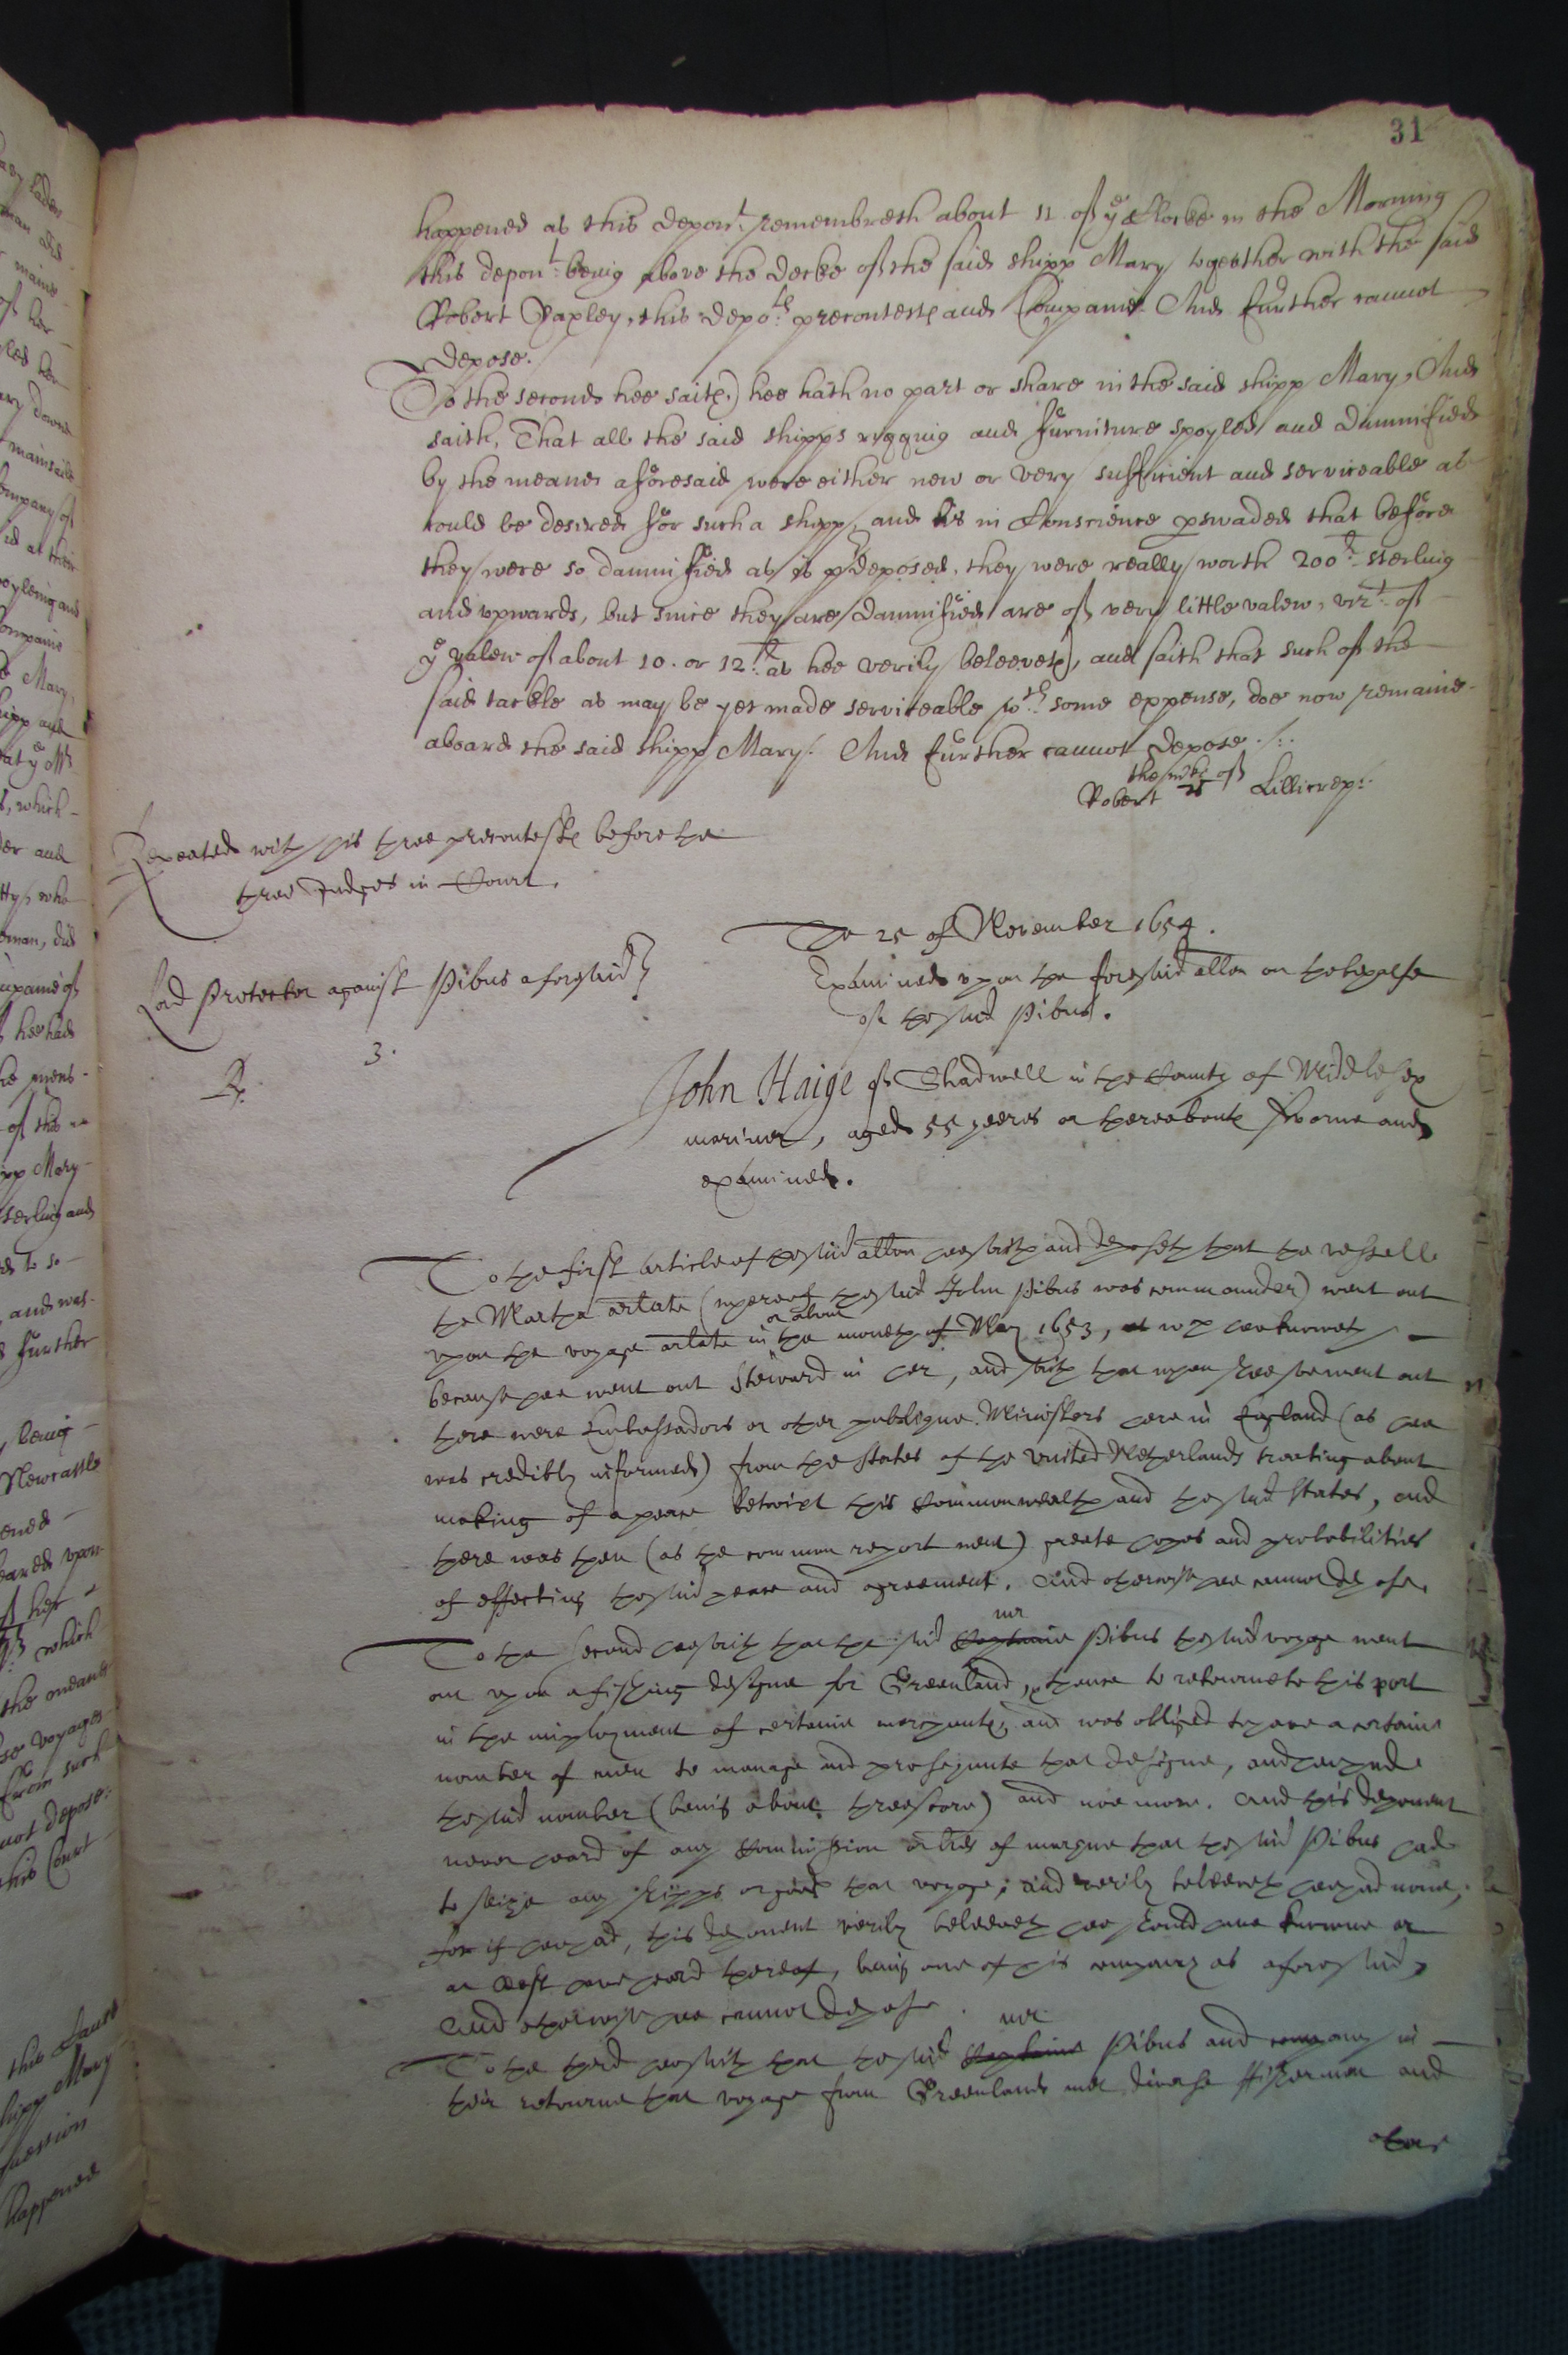 31
happened as this Depont. remembreth about 11 of ye Clocke in the Morning
this depont. being above the decke of the said shipp Mary together with the said
Robert Yaxley, this depo.ts precontests and Companie. And further cannot
depose.
To the second hee saith, hee hath no part or share in the said shipp Mary, And
saith, That all the said shipps rigging and furniture spoyled and dammified
by the meanes aforesaid were either new or very sufficient and serviceable as
could be desired for such a shipp, and is in Conscience pswaded that before
they were so dammified as is pdeposed, they were really worth 200li. sterling
and upwards, but since they are dammified are of very little valew, vizt. of
ye valew of about 10. or 12li. as hee verily beleeveth, and saith that such of the
said tackle as may be yet made serviceable wth. some expense, doe now remaine
aboard the said shipp Mary. And further cannot depose./:.
the mke of
Robert Lillicrep:
Repeated with his three precontests before the
three Judges in Court.
The 25 of November 1654.
Lord Protector against Pibus aforesaid
Examined upon the foresaid allon on the behalfe
of the said Pibus.
3.
Rp.
John Haige of Shadwell in the County of Middlesex
mariner, aged 55 yeeres or thereabouts sworne and
examined.
To the first article of the said allon hee saith and deposeth that the vessell
the Martha arlate (whereof the said John Pibus was commaunder) went out
upon the voyage arlate in or about the moneth of May 1653, wch hee knoweth
because hee went out Steward in her, and saith that when shee soe went out
there were Embassadors or other publique Ministers here in England (as hee
was credibly informed) from the States of the United Netherlands treating about
making of a peace betwixt this Commonwealth and the said States, and
there was then (as the common report went) greate hopes and probabilities
of effecting the said peace and agreement. And otherwise hee cannot depose.
To the second hee saith that the said Captaine mr Pibus the said voyage went
out upon a fishing designe for Greenland, thence to retourne to this port
in the imployment of certaine merchants, and was obliged to have a certaine
number of men to manage and prosequute that designe, and hee had
the said number (being about threescore) and noe more. And this deponent
never heard of any Commission or lres of marque that the said Pibus had
to seize any shipps or goods that voyage, and verily beleeveth hee had none,
for if hee had, this deponent verily beleeveth hee should have knowne or
at least have heard thereof, being one of his company as aforesaid,
And otherwise hee cannot depose.
To the third hee saith that the said Captaine mr Pibus and company in
their retourne that voyage from Greenland met diverse fishermen and
other